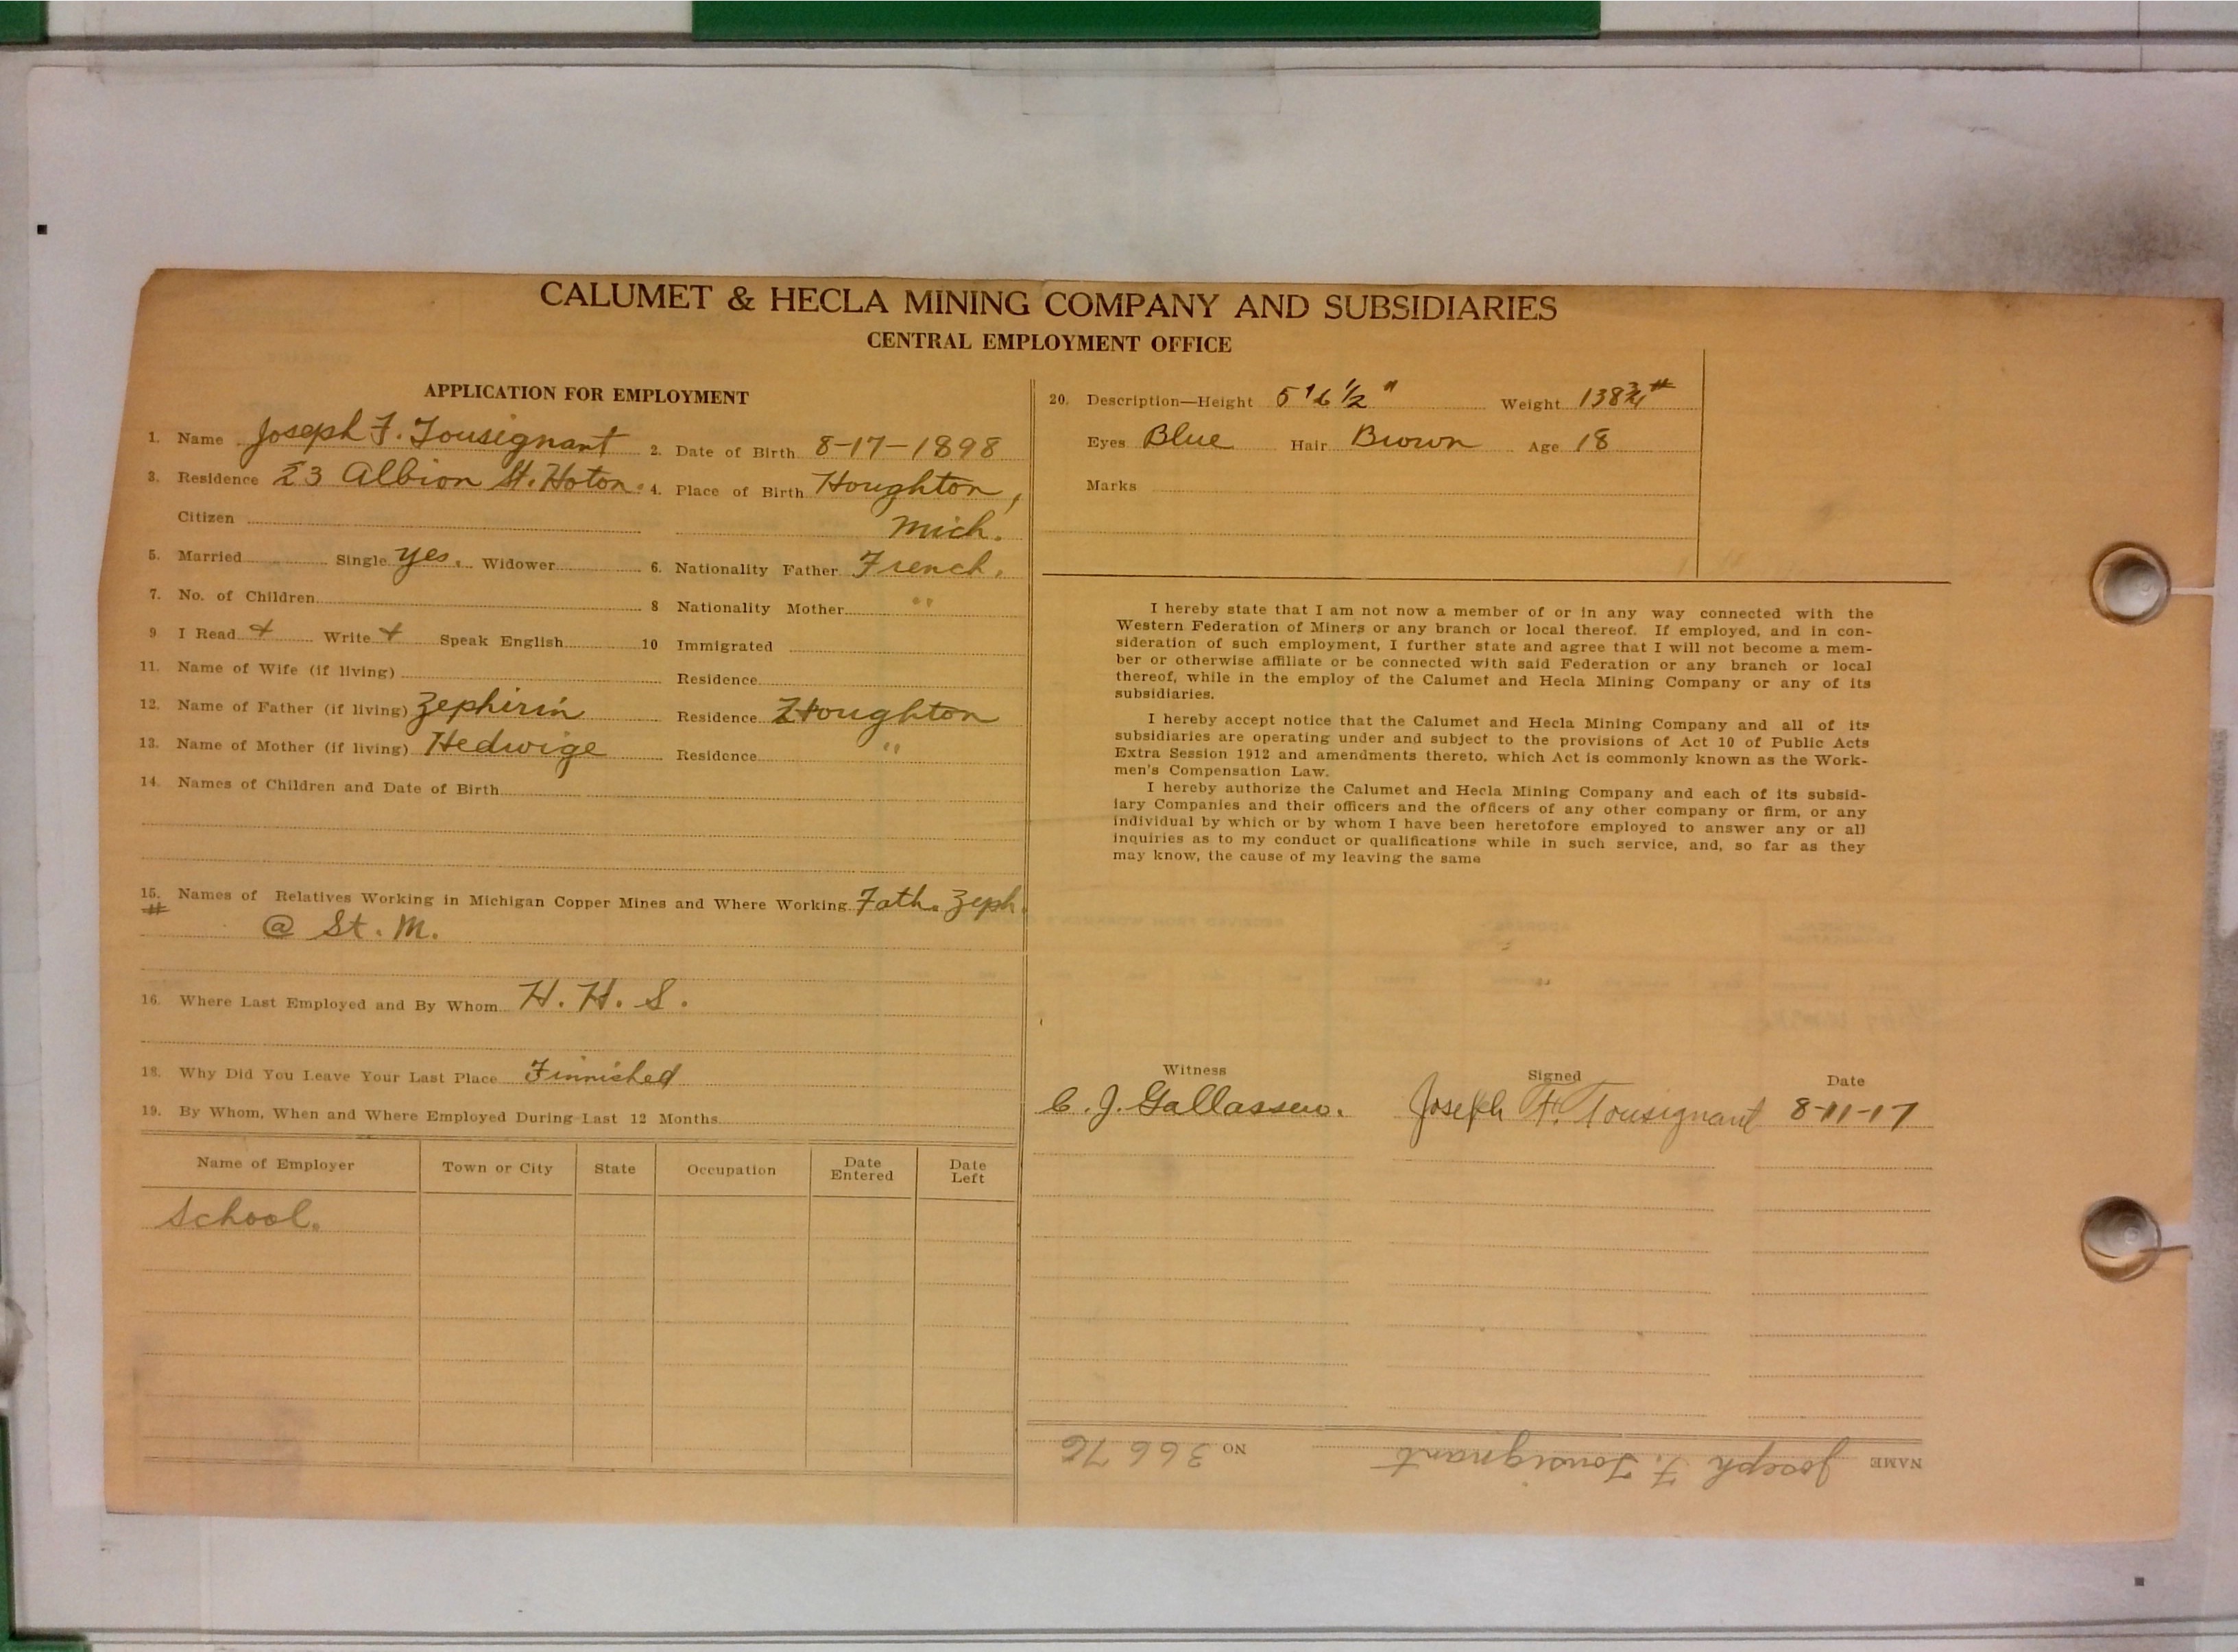 CALUMET & HECLA MINING COMPANY AND SUBSIDIARIES
CENTRAL EMPLOYMENT OFFICE
APPLICATION FOR EMPLOYMENT
1. Name Joseph F. Tousignant 2. Date of Birth 8-17-1898
3. Residence 23 Albion St. Hoton. 4. Place of Birth Houghton,
Citizen Mich.
5. Married Single yes. Widower 6. Nationality Father French.
7. No. of Children 8 Nationality Mother "
9 I Read + Write + Speak English 10 Immigrated
11. Name of Wife (if living) Residence
12. Name of Father (if living) Zephirin Residence Houghton
13. Name of Mother (if living) Hedwige Residence "
14. Names of Children and Date of Birth
15. Names of Relatives Working in Michigan Copper Mines and Where Working Fath. Zeph.
# @ St. M.
16. Where Last Employed and By Whom H. H. S.
18. Why Did You Leave Your Last Place Finnished
19. By Whom, When and Where Employed During Last 12 Months
Name of Employer Town or City State Occupation Date Entered Date Left
School.
20. Description—Height 5'6 1/2" Weight 138 3/4 #
Eyes Blue Hair Brown Age 18
Marks
I hereby state that I am not now a member of or in any way connected with the
Western Federation of Miners or any branch or local thereof. If employed, and in con-
sideration of such employment, I further state and agree that I will not become a mem-
ber or otherwise affiliate or be connected with said Federation or any branch or local
thereof, while in the employ of the Calumet and Hecla Mining Company or any of its
subsidiaries.
I hereby accept notice that the Calumet and Hecla Mining Company and all of its
subsidiaries are operating under and subject to the provisions of Act 10 of Public Acts
Extra Session 1912 and amendments thereto, which Act is commonly known as the Work-
men's Compensation Law.
I hereby authorize the Calumet and Hecla Mining Company and each of its subsid-
iary Companies and their officers and the officers of any other company or firm, or any
individual by which or by whom I have been heretofore employed to answer any or all
inquiries as to my conduct or qualifications while in such service, and, so far as they
may know, the cause of my leaving the same
Witness Signed Date
C. J. Gallassero. Joseph F. Tousignant 8-11-17
NAME Joseph F. Tousignant NO 36676